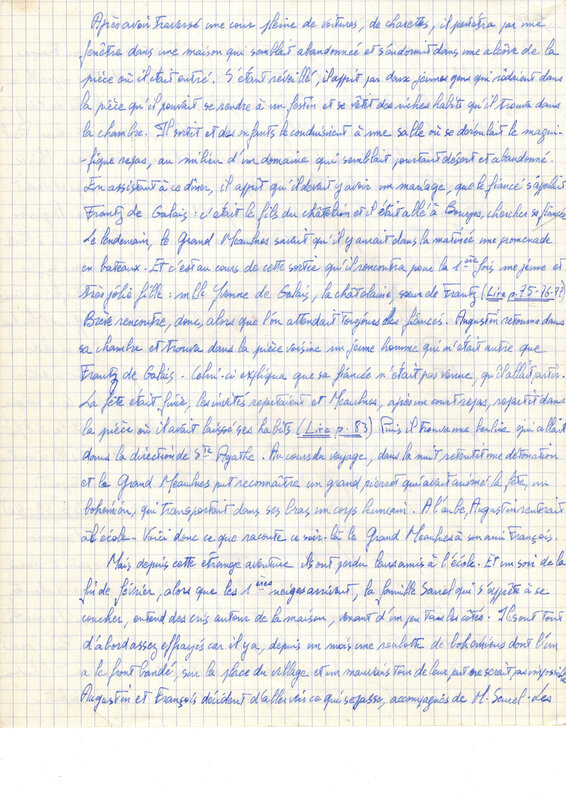 Après avoir traversé une cour pleine de voitures, de charettes, il pénétra par une
fenêtre dans une maison qui semblait abandonnée et s'endormit dans une alcôve de la
pièce où il était entré. S'étant réveillé, il apprit par deux jeunes gens qui rôdaient dans
la pièce qu'il pouvait se rendre à un festin et se vêtit des riches habits qu'il trouva dans
la chambre. Il sortit et des enfants le conduisirent à une salle où se déroulait le magni-
-fique repas, au milieu d'un domaine qui semblait pourtant désert et abandonné.
En assistant à ce dîner, il apprit qu'il devait y avoir un mariage, que le fiancé s'appelait
Frantz de Galais : c'était le fils du châtelain et il était allé à Bourges, chercher sa fiancée
Le lendemain, le Grand Meaulnes savait qu'il y aurait dans la matinée une promenade
en bateaux. Et c'est au cours de cette sortie qu'il rencontra pour la 1ère fois une jeune et
très jolie fille : mlle Yvonne de Galais, la châtelaine, soeur de Frantz (Lire p. 75-76-77)
Brève rencontre, donc, alors que l'on attendait toujours les fiancés. Augustin retourna dans
sa chambre et trouva dans la pièce voisine un jeune homme qui n'était autre que
Frantz de Galais. Celui-ci expliqua que sa fiancée n'était pas venue, qu'il allait partir.
La fête était finie, les invités repartaient et Meaulnes, après un court repas, repartit dans
la pièce où il avait laissé ses habits (Lire p. 83) Puis il trouva une berline qui allait
dans la direction de Ste Agathe. Au cours du voyage, dans la nuit, retentit une détonation
et la Grand Meaulnes put reconnaître un grand pierrot qui avait animé la fête, un
bohémien, qui transportait dans ses bras un corps humain. A l'aube, Augustin rentrait
à l'école. Voici donc ce que raconte ce soir-là le Grand Meaulnes à son ami François.
Mais depuis cette étrange aventure ils ont perdu leurs amis à l'école. Et un soir de la
fin de février, alors que les 1ères neiges arrivent, la famille Seurel qui s'apprête à se
coucher, entend des cris autour de la maison, venant d'un peu tous les côtés. Ils sont tout
d'abord assez effrayés car il y a, depuis un mois une roulotte de bohémiens dont l'un
a le front bandé, sur la place du village et un mauvais tour de leur part ne serait pas impossible
Augustin et François décident d'aller voir ce qui se passe, acompagnés de M. Seurel. Les